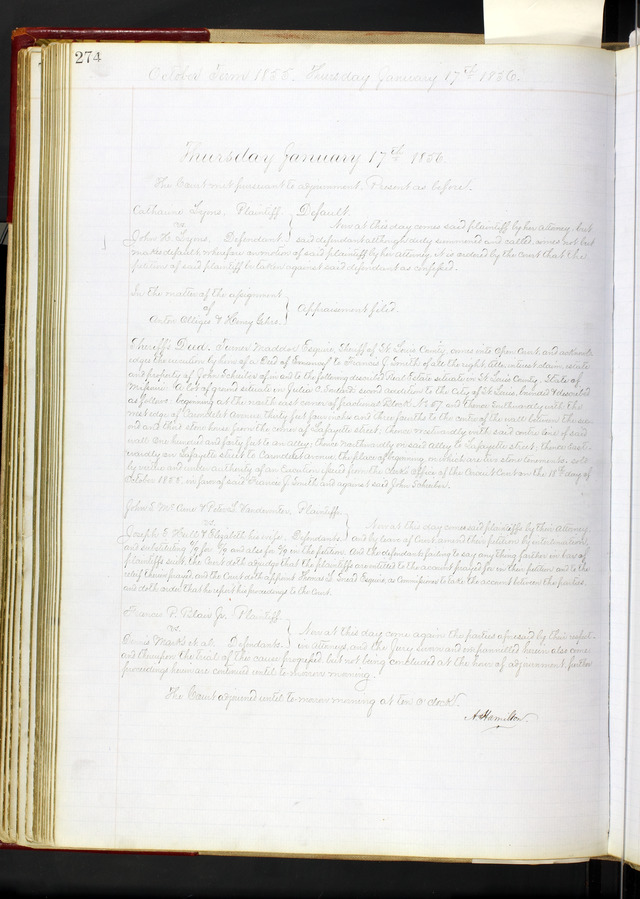 274
October Term 1855. Thursday January 17th 1856.
Thursday January 17th 1856.
The Court met pursuant to adjournment. Present as before.
Catharine Lyons, Plaintiff } Default.
vs. Now at this day comes said plaintiff by her Attorney, but
John H. Lyons, Defendant. said defendant although duly summoned and called, comes not but
makes default, wherefore on motion of said plaintiff by her Attorney it is ordered by the Court that the
petition of said plaintiff be taken against said defendant as confessed.
In the matter of the assignment
of } Appraisement filed.
Anton & Henry
Sheriff's Deed. Esquire, Sheriff of St Louis County, comes into Open Court and acknow-
ledges the execution by him of a Deed of to Francis J. Smith of all the right, title, interest, claim, estate
and property of John in and to the following described Real Estate situate in St Louis County, State of
Missouri. A lot of ground situate in Julia C. second addition to the City of St Louis, bounded & described
as follows: beginning at the north east corner of Block No 57 and thence southwardly with the
west edge of Carondelet Avenue thirty feet four inches and three fourths to the centre of the wall between the sec-
ond and third stone house from the corner of Lafayette street; thence westwardly with said centre line of said
wall one hundred and forty feet to an alley; thence northwardly on said alley to Lafayette street; thence East-
wardly on Lafayette street to Carondelet avenue the place of beginning, on which are two stone tenements. sold
by virtue and under authority of an Execution issued from the clerk's office of the Circuit Court on the 18th day of
October 1855. in favor of said Francis J. Smith and against said John
John E. & Peter Plaintiffs
vs. } Now at this day come said plaintiffs by their Attorney
Joseph E. Hull & Elizabeth his wife, Defendants. and by leave of Court amend their petition by interlineation
and substituting for and also for in the petition. And the defendants failing to say any thing further in bar of
plaintiffs suit, the Court doth adjudge that the plaintiffs are entitled to the account prayed for in their petition and to the
relief therein prayed, and the Court doth appoint Thomas Esquire, as Commissioner to take the account between the parties
and doth order that he report his proceedings to the Court.
Francis P. Blair Jr. Plaintiff
vs. } Now at this day come again the parties aforesaid by their respect-
Dennis Marks et al. Defendants. ive attorneys, and the Jury sworn and empannelled herein also come
and thereupon the trial of this cause progressed, but not being concluded at the hour of adjournment, further
proceedings herein are continued until to morrow morning.
The Court adjourned until to morrow morning at ten o'clock.
A Hamilton